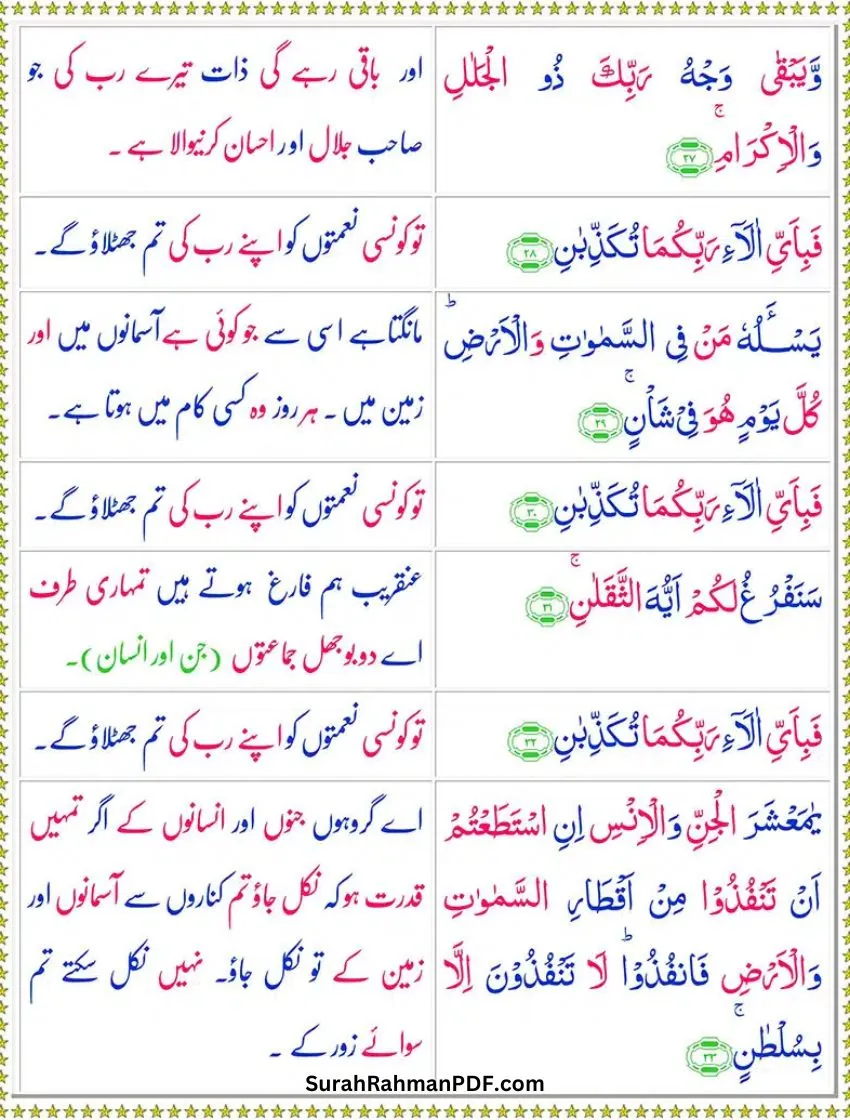 وَّيَبْقٰى وَجْهُ رَبِّكَ ذُو الْجَلٰلِ
وَالْاِكْرَامِۚ ۲۷
اور باقی رہے گی ذات تیرے رب کی جو
صاحب جلال اور احسان کرنیوالا ہے ۔
فَبِاَيِّ اٰلَآءِ رَبِّكُمَا تُكَذِّبٰنِ ۲۸
تو کونسی نعمتوں کو اپنے رب کی تم جھٹلاؤ گے۔
يَسْـَٔلُهٗ مَنْ فِى السَّمٰوٰتِ وَالْاَرْضِؕ
كُلَّ يَوْمٍ هُوَ فِىْ شَاْنٍۚ ۲۹
مانگتا ہے اسی سے جو کوئی ہے آسمانوں میں اور
زمین میں ۔ ہر روز وہ کسی کام میں ہوتا ہے۔
فَبِاَيِّ اٰلَآءِ رَبِّكُمَا تُكَذِّبٰنِ ۳۰
تو کونسی نعمتوں کو اپنے رب کی تم جھٹلاؤ گے۔
سَنَفْرُغُ لَكُمْ اَيُّهَ الثَّقَلٰنِۚ ۳۱
عنقریب ہم فارغ ہوتے ہیں تمہاری طرف
اے دو بوجھل جماعتوں (جن اور انسان)۔
فَبِاَيِّ اٰلَآءِ رَبِّكُمَا تُكَذِّبٰنِ ۳۲
تو کونسی نعمتوں کو اپنے رب کی تم جھٹلاؤ گے۔
يٰمَعْشَرَ الْجِنِّ وَالْاِنْسِ اِنِ اسْتَطَعْتُمْ
اَنْ تَنْفُذُوْا مِنْ اَقْطَارِ السَّمٰوٰتِ
وَالْاَرْضِ فَانفُذُوْاؕ لَا تَنْفُذُوْنَ اِلَّا
بِسُلْطٰنٍۚ ۳۳
اے گروہوں جنوں اور انسانوں کے اگر تمہیں
قدرت ہو کہ نکل جاؤ تم کناروں سے آسمانوں اور
زمین کے تو نکل جاؤ۔ نہیں نکل سکتے تم
سوائے زور کے ۔
SurahRahmanPDF.com